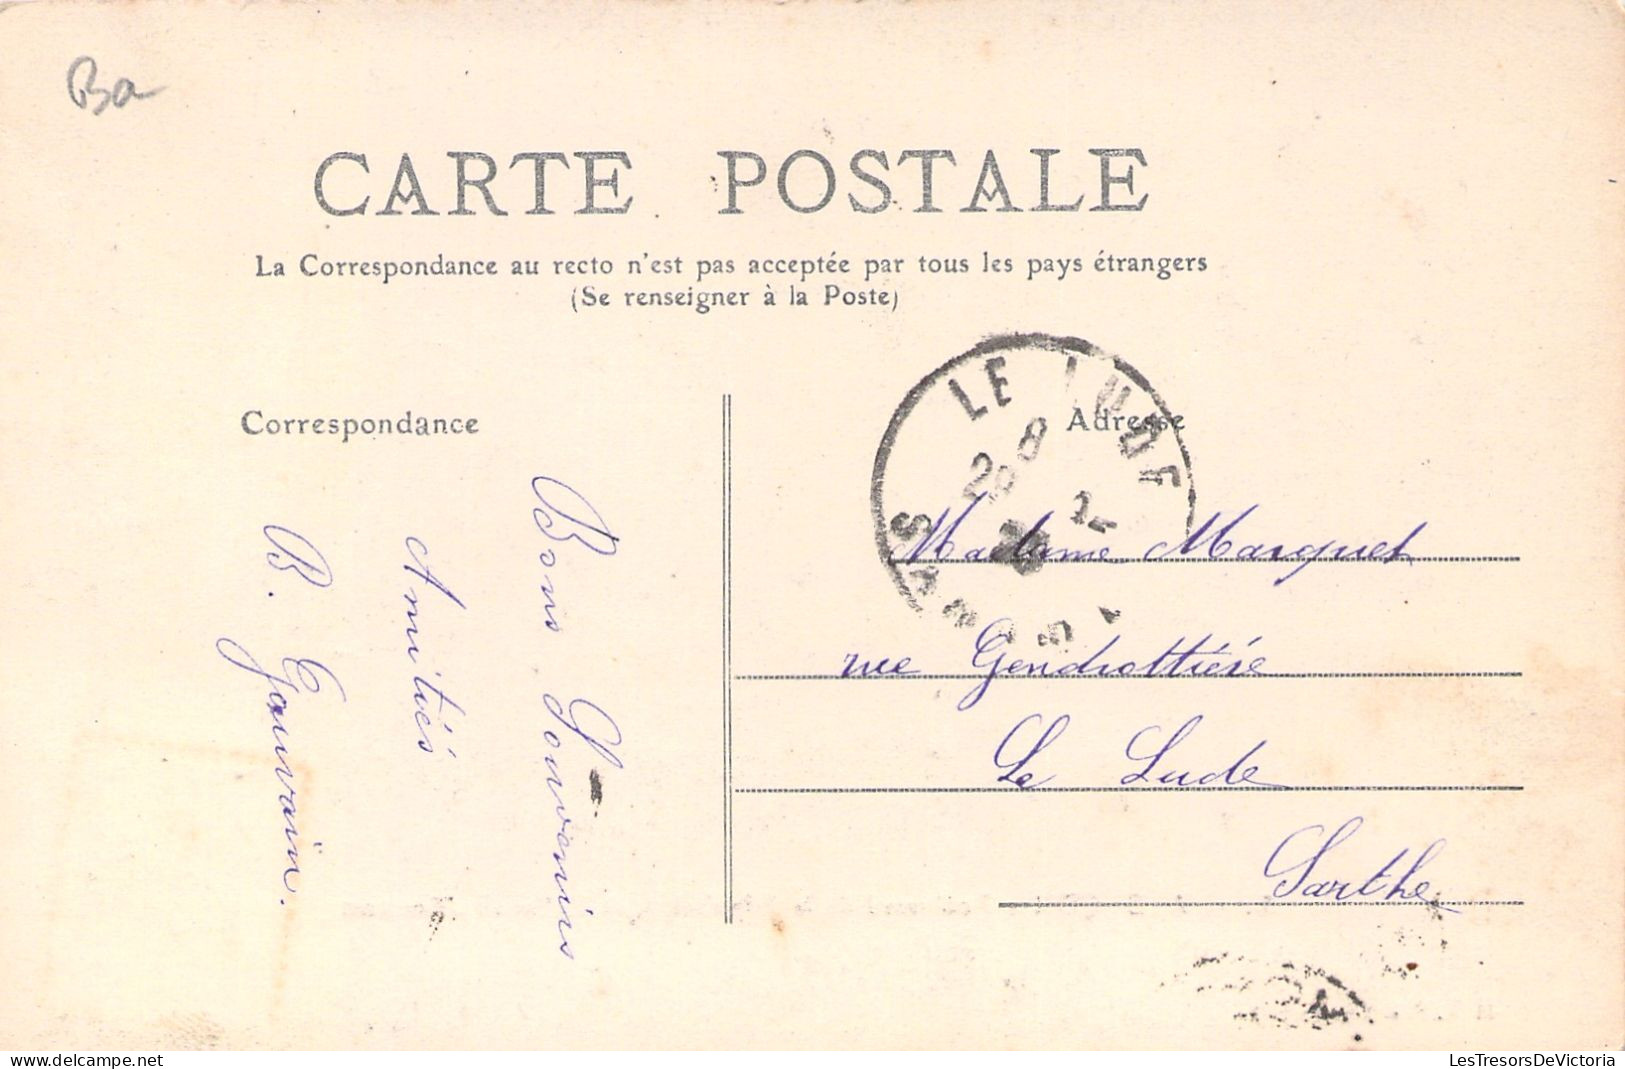 Ba
CARTE POSTALE
La Correspondance au recto n'est pas acceptée par tous les pays étrangers
(Se renseigner à la Poste)
Correspondance
Adresse
LE LUDE
8
SARTHE
Bons Souvenirs
Amitiés
B. Gauvain.
Madame Marquet
rue Gendrottière
Le Lude
Sarthe
LesTresorsDeVictoria